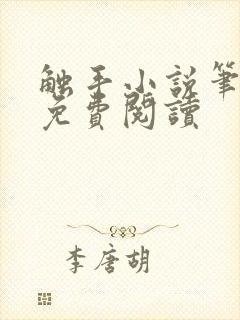 触手小説筆
免費閱讀
李唐胡